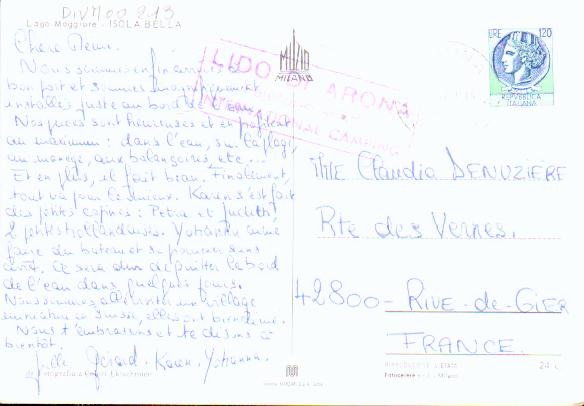 DIVM00 213
Lago Maggiore - ISOLA BELLA
Chère
Nous sommes enfin arrivés à
bon port et sommes
installés juste au bord de l'eau.
Nos puces sont heureuses et en profitent
au maximum : dans l'eau, sur la plage,
au manège, aux balançoires, etc...
Et en plus, il fait beau. Finalement,
tout va pour le mieux. Karen s'est fait
des petites copines : Petra et Judith,
2 petites hollandaises. Yohanna aime
faire du bateau et se promener sans
arrêt. Ce sera dur de quitter le bord
de l'eau dans quelques jours.
Nous sommes allés visiter un village
miniature en Suisse, elles ont bien aimé.
Nous t'embrassons et te disons à
bientôt.
Gérard. Karen. Yohanna.
MUZIO
MILANO
LIDO DI ARONA
INTERNATIONAL CAMPING
LIRE 120
REPVBBLICA
ITALIANA
Mlle Claudia DENUZIÈRE
Rte des Vernes.
42800 - RIVE-de-GIER
FRANCE.
RIPRODUZIONE VIETATA
Fotocelere Milano
24